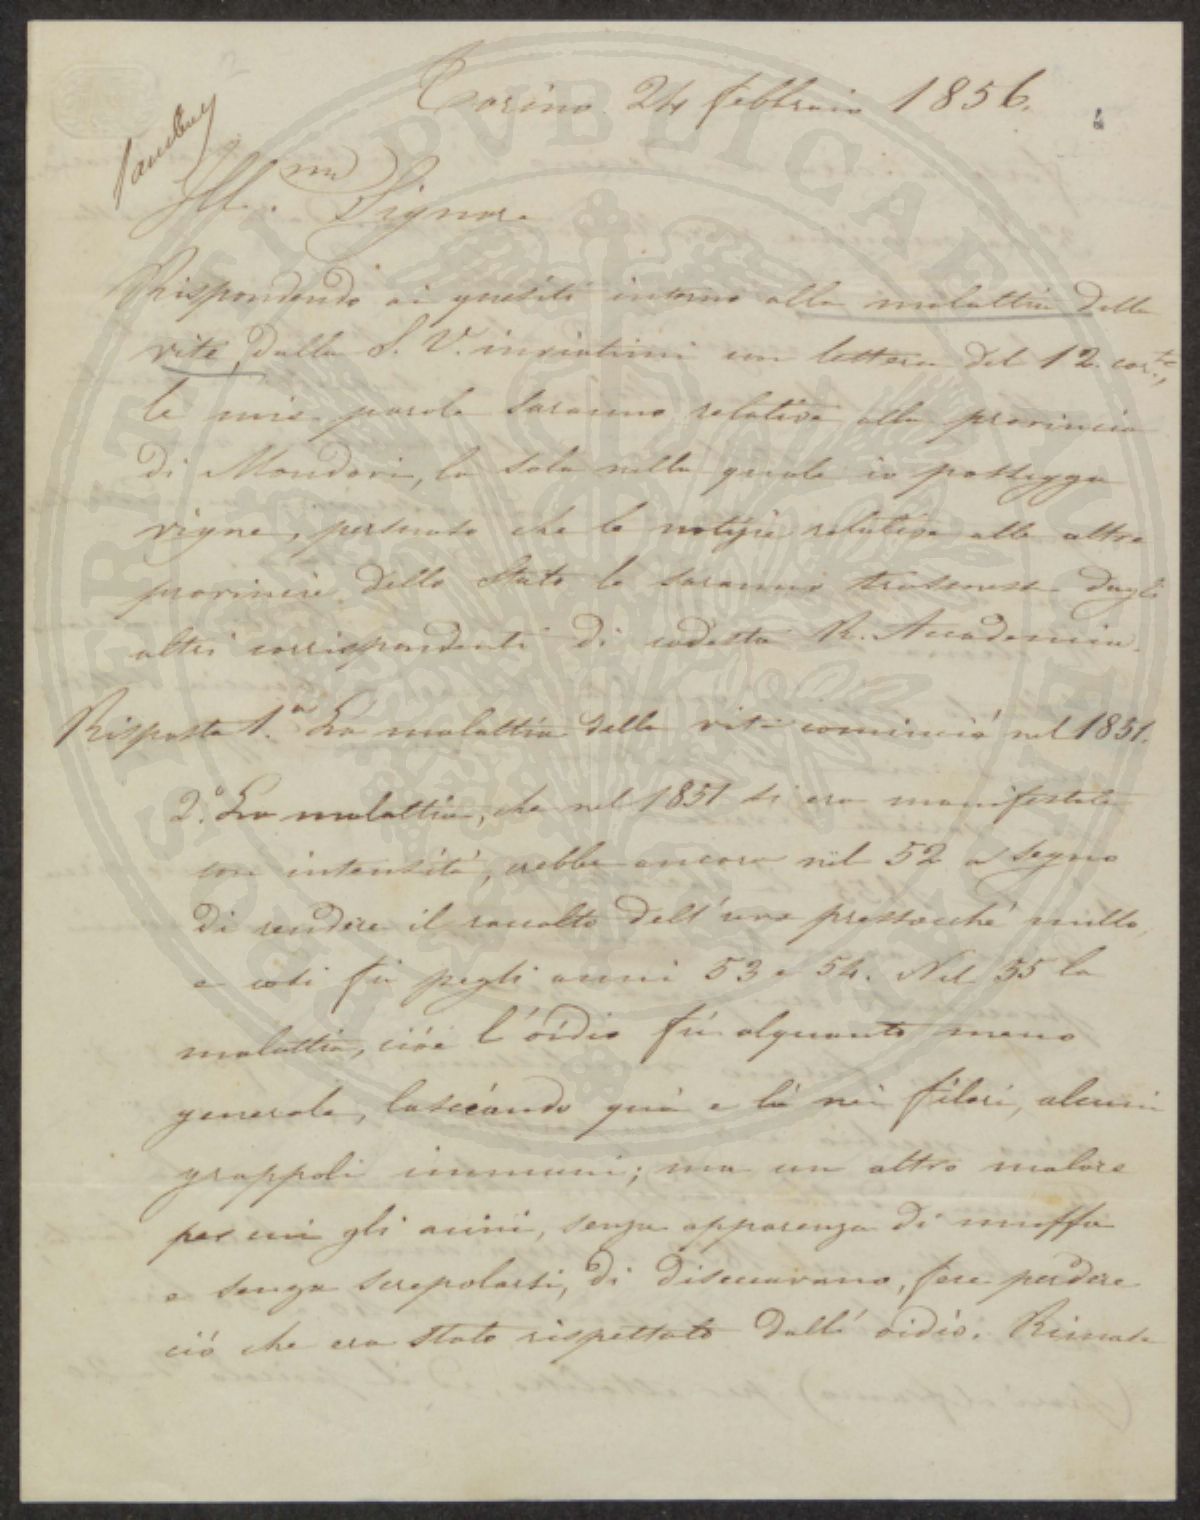 Torino 24 febbraio 1856.
Ill.mo Signore
Rispondendo ai quesiti intorno alla malattia della
vite, dalla S. V. inviatimi con lettera del 12. corr.te,
le mie parole saranno relative alla provincia
di Mondovi, la sola nella quale io possegga
vigne, persuaso che le notizie relative alle altre
provincie dello Stato le saranno trasmesse dagli
altri corrispondenti di codesta R. Accademia.
Risposta 1.a La malattia della vite cominciò nel 1851.
2.o La malattia, che nel 1851 si era manifestata
con intensità, crebbe ancora nel 52 a segno
di rendere il raccolto dell'uva pressochè nullo,
e così fù pegli anni 53 e 54. Nel 55 la
malattia, cióè l'oídio fù alquanto meno
generale, lasciando quà e là nei filari, alcuni
grappoli immuni; ma un altro malore
per cui gli acini, senza apparenza di muffa
e senza screpolarsi, di disseccavano, fece perdere
ciò che era stato rispettato dall'oidio. Rimase